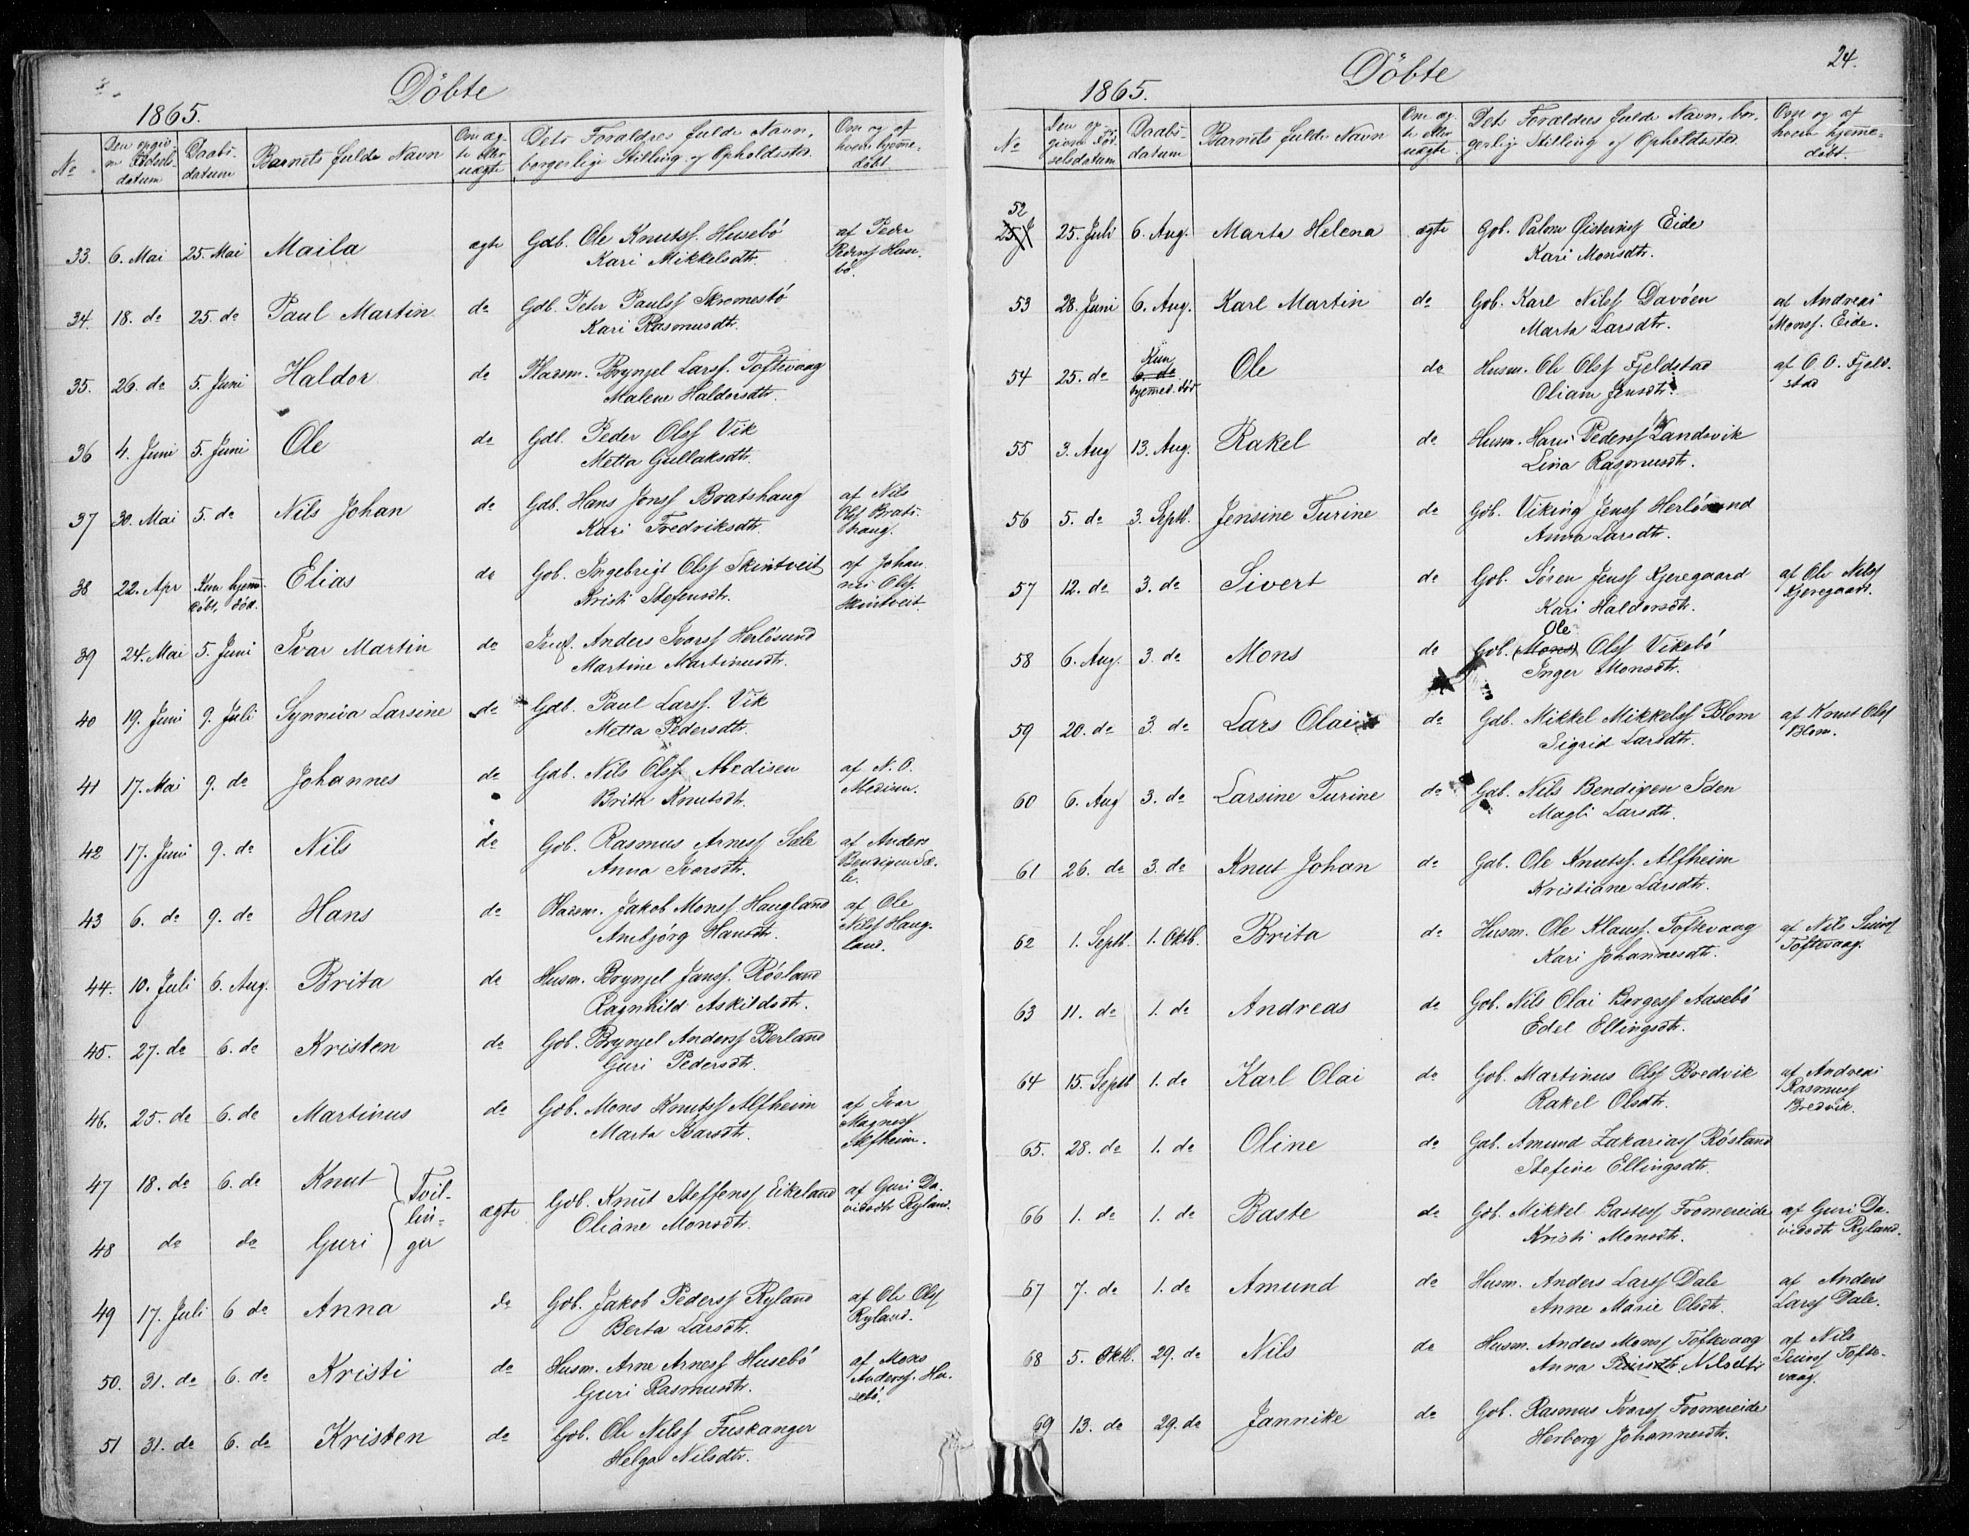 Döbte
1865.
No
Den opgiv-
ne Födsels-
datum
Daabs-
datum
Barnets fulde Navn
Om æg-
te eller
uægte
Dets Forældres fulde Navn,
borgerlige Stilling og Opholdssted
Om og af
hvem hjemme-
döbt.
33. 6. Mai 25. Mai Maila ægte Gdb. Ole Knutsf. Husebö af Peder
Kari Mikkelsdtr. Pedersf Huse-
bö
34. 18. do 25. do Paul Martin do Gdb. Peter Paulsf Skromesbö
Kari Rasmusdtr.
35. 26. do 5. Juni Haldor do Pladsm. Brynjel Larsf. Toftevaag
Malene Haldorsdtr.
36 4. Juni 5. Juni Ole do Gdb. Peder Olsf Vik
Metta Gullaksdtr.
37 30. Mai 5. do Nils Johan do Gdb. Hans Jonsf Bratshaug af Nils
Kari Fredriksdtr. Olsf Brats-
haug.
38 22. Apr Kun hjem- Elias do Gdb. Ingebrigt Olsf Skintveit af Johan-
döbt, död. Kristi Stefensdtr. nes Olsf.
Skintveit
39 24. Mai 5. Juni Ivar Martin do Anders Ivarsf Herlösund
Martine Martinusdtr.
40 19. Juni 9. Juli Synneva Larsine do Gdb. Paul Larsf. Vik
Metta Pedersdtr.
41 17. Mai 9. do Johannes do Gdb. Nils Olsf. Medisen af N. O.
Brita Knutsdtr. Medisen.
42 17. Juni 9. do Nils do Gdb. Rasmus Arnesf Sæle af Anders
Anna Ivarsdtr. Bendixen Sæ-
le.
43 6. do 9. do Hans do Pladsm. Jakob Monsf Haugland af Ole
Anbjörg Hansdtr. Nilsf Haug-
land.
44. 10. Juli 6. Aug. Brita do Husm. Brynjel Jansf. Rösland
Ragnhild Askildsdtr.
45. 27. do 6. do Kristen do Gdb. Brynjel Andersf Berland
Guri Pedersdtr.
46. 25. do 6. do Martinus do Gdb. Mons Knutsf Alfheim af Ivar
Marta Ivarsdtr. Magnesf
Alfheim.
47 18. do 6. do Knut Tvil-
lin-
ger ægte Gdb. Knut Steffensf Eikeland af Guri Da-
Oliane Monsdtr. vidsdtr Ryland.
48 do do Guri
49 17. Juli 6 do Anna do Gdb. Jakob Pedersf Ryland af Ole Olsf
Berta Larsdtr. Ryland.
50. 31. do 6. do Kristi do Husm. Arne Arnesf Husebö af Mons
Guri Rasmusdtr. Andersf. Hu-
sebö.
51 31. do 6. do Kristen do Gdb. Ole Nilsf Fuskanger
Helga Nilsdtr.
24.
Döbte
1865.
No
Den op-
givne Föd-
selsdatum
Daabs-
datum
Barnets fulde Navn
Om æg-
te eller
uægte
Dets Forældres fulde Navn, bor-
gerlig Stilling og Opholdssted
Om og af
hvem hjemme-
döbt.
52 25. Juli 6. Aug. Marta Helena ægte Gdb. Palm Östensf Eide
Kari Monsdtr.
53 28. Juni 6. Aug. Karl Martin do Gdb. Karl Nilsf Davöen af Andreas
Marta Larsdtr. Monsf. Eide.
54 25. do Kun
6. do
hjemmed. död Ole do Husm. Ole Olsf Fjeldstad af O. O. Fjeld-
Oliana Jensdtr. stad
55 3. Aug 13. Aug. Rakel do Husm. Hans Pedersf Landsvik
Lina Rasmusdtr.
56 5. do 3. Septb. Jensine Turine do Gdb. Viking Jensf Herlösund
Anna Larsdtr.
57 12. do 3. do Sivert do Gdb. Sören Jensf Kjeregaard af Ole Nilsf
Kari Haldorsdtr. Kjeregaard.
58 6. Aug. 3. do Mons do Gdb. (Mons) Ole Olsf Vikebö
Inger Monsdtr.
59 20. do 3. do Lars Olai do Gdb. Mikkel Mikkelsf Blom af Knut Olsf
Sigrid Larsdtr. Blom.
60 6. Aug 3. do Larsine Turine do Gdb. Nils Bendixen Iden
Magli Larsdtr.
61 26. do 3. do Knut Johan do Gdb. Ole Knutsf. Alfheim
Kristiane Larsdtr.
62 1. Septb. 1. Oktb. Brita do Husm. Ole Klausf. Toftevaag af Nils
Kari Johannesdtr. Toftevaag.
63 11. do 1. do Andreas do Gdb. Nils Olai Børgesf Aasebö
Edel Ellingsdtr.
64 15. Septb 1. do Karl Olai do Gdb. Martinus Olsf Bredvik af Andreas
Rakel Olsdtr. Rasmusf
Bredvik.
65. 28. do 1. do Oline do Gdb. Amund Zakariasf Rösland
Stefine Ellingsdtr.
66 1. do 1. do Baste do Gdb. Mikkel Bastesf Fromereide af Guri Da-
Kristi Monsdtr. vidsdtr Ryland.
67 7. do 1. do Amund do Husm. Anders Larsf Dale af Anders
Anne Marie Olsdtr. Larsf Dale.
68 5. Oktb. 29. do Nils do Husm. Anders Monsf Toftevaag af Nils
Anna Nilsdtr Tofte-
vaag.
69 13. do 29. do Jannike do Gdb. Rasmus Ivarsf Fromereide
Herborg Johannesdtr.